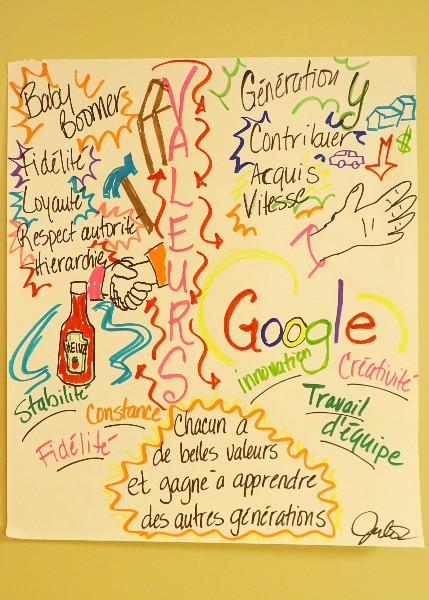 Baby
Boomer
Fidélité
Loyauté
Respect autorité
Hierarchie
HEINZ
Stabilité
Constance
Fidélité
VALEURS
Génération Y
Contribuer
Acquis
Vitesse
$
Google
innovation
Créativité
Travail
d'équipe
Chacun a
de belles valeurs
et gagne à apprendre
des autres générations